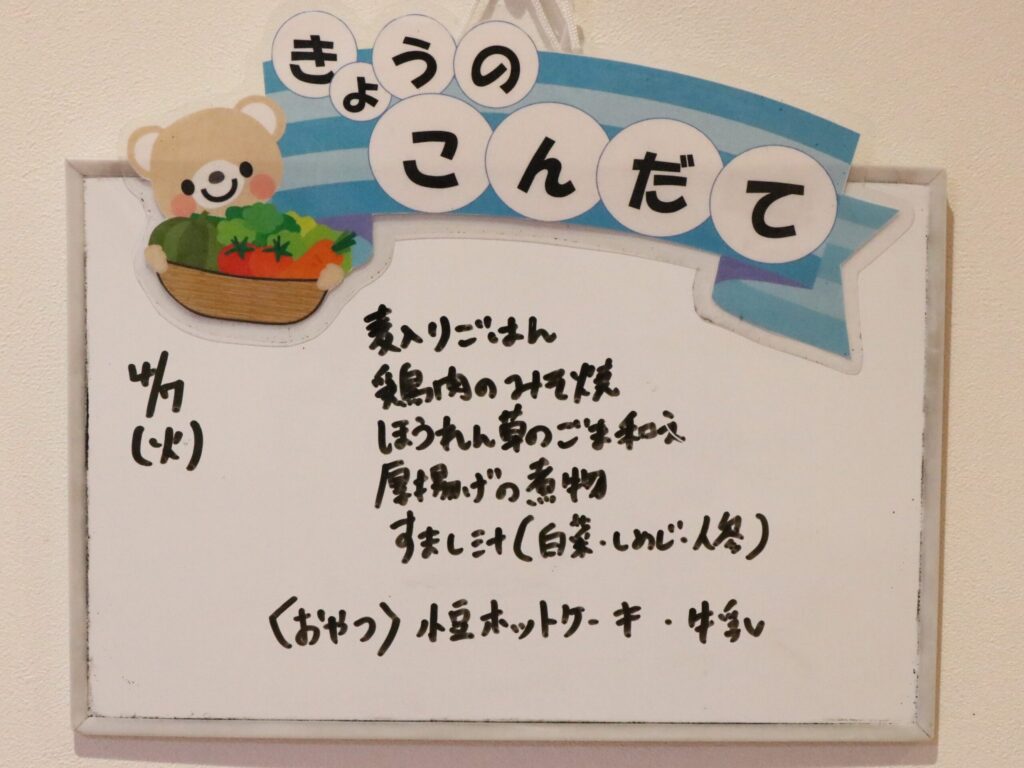 きょうの
こんだて
4/7
(火)
麦入りごはん
鶏肉のみそ焼
ほうれん草のごま和え
厚揚げの煮物
すまし汁(白菜・しめじ・人参)
〈おやつ〉小豆ホットケーキ・牛乳